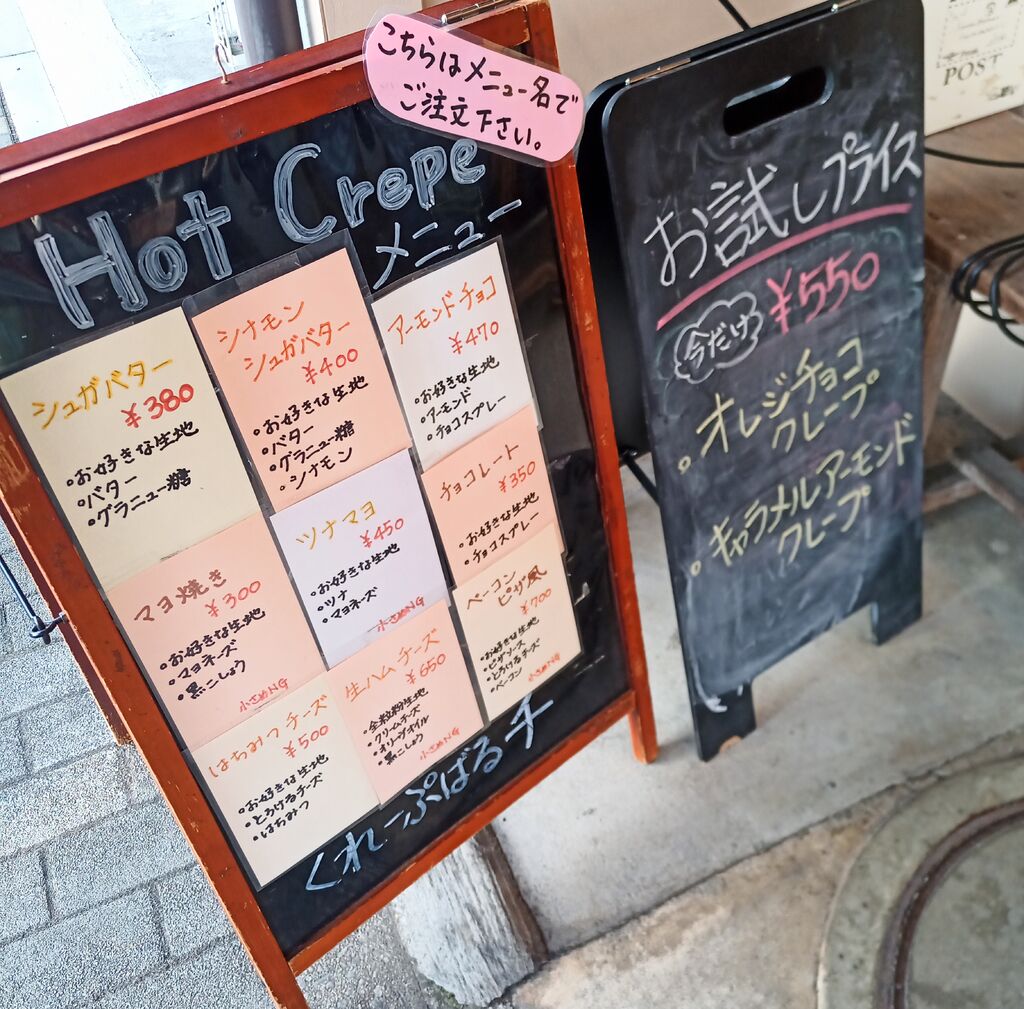 こちらはメニュー名で
ご注文下さい。
Hot Crepe
メニュー
シュガバター
¥380
・お好きな生地
・バター
・グラニュー糖
シナモン
シュガバター
¥400
・お好きな生地
・バター
・グラニュー糖
・シナモン
アーモンドチョコ
¥470
・お好きな生地
・アーモンド
・チョコスプレー
マヨ焼き
¥300
・お好きな生地
・マヨネーズ
・黒こしょう
小さめNG
ツナマヨ
¥450
・お好きな生地
・ツナ
・マヨネーズ
小さめNG
チョコレート
¥350
・お好きな生地
・チョコスプレー
はちみつチーズ
¥500
・お好きな生地
・とろけるチーズ
・はちみつ
生ハムチーズ
¥650
・全粒粉生地
・クリームチーズ
・オリーブオイル
・黒こしょう
小さめNG
ベーコン
ピザ風
¥700
・お好きな生地
・ピザソース
・とろけるチーズ
・ベーコン
小さめNG
くれーぷばるチ
お試しプライス
今だけ
¥550
・オレンジチョコ
クレープ
・キャラメルアーモンド
クレープ
POST